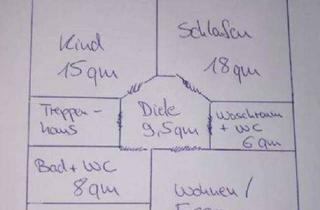 Kind
15 qm
Schlafen
18 qm
Treppen-
haus
Diele
9,5 qm
Waschraum
+ WC
6 qm
Bad + WC
8 qm
Wohnen /